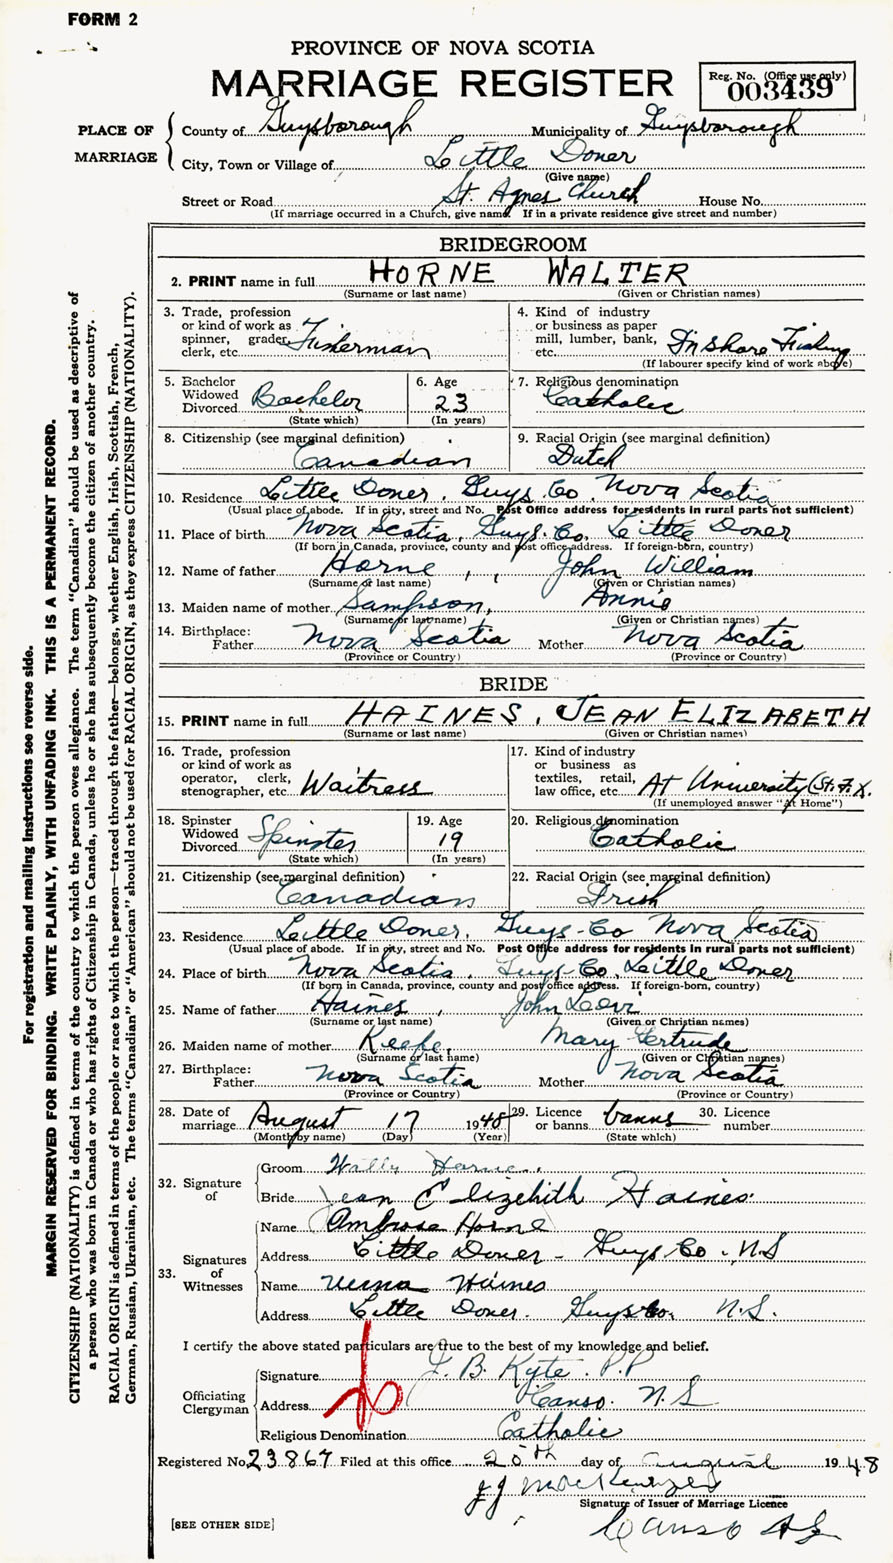 FORM 2
PROVINCE OF NOVA SCOTIA
MARRIAGE REGISTER
Reg. No. (Office use only)
003439
PLACE OF MARRIAGE
County of Guysborough Municipality of Guysborough
City, Town or Village of Little Doner
(Give name)
Street or Road St. Agnes Church House No.
(If marriage occurred in a Church, give name. If in a private residence give street and number)
BRIDEGROOM
2. PRINT name in full HORNE WALTER
(Surname or last name) (Given or Christian names)
3. Trade, profession or kind of work as spinner, grader, clerk, etc. Fisherman
4. Kind of industry or business as paper mill, lumber, bank, etc. Inshore Fishing
(If labourer specify kind of work above)
5. Bachelor Widowed Divorced Bachelor
(State which)
6. Age 23
(In years)
7. Religious denomination Catholic
8. Citizenship (see marginal definition) Canadian
9. Racial Origin (see marginal definition) Dutch
10. Residence Little Doner, Guys. Co. Nova Scotia
(Usual place of abode. If in city, street and No. Post Office address for residents in rural parts not sufficient)
11. Place of birth Nova Scotia, Guys. Co. Little Doner
(If born in Canada, province, county and post office address. If foreign-born, country)
12. Name of father Horne, John William
(Surname or last name) (Given or Christian names)
13. Maiden name of mother Sampson, Annie
(Surname or last name) (Given or Christian names)
14. Birthplace: Father Nova Scotia Mother Nova Scotia
(Province or Country) (Province or Country)
BRIDE
15. PRINT name in full HAINES, JEAN ELIZABETH
(Surname or last name) (Given or Christian names)
16. Trade, profession or kind of work as operator, clerk, stenographer, etc. Waitress
17. Kind of industry or business as textiles, retail, law office, etc. At University (St. F. X.
(If unemployed answer "At Home")
18. Spinster Widowed Divorced Spinster
(State which)
19. Age 19
(In years)
20. Religious denomination Catholic
21. Citizenship (see marginal definition) Canadian
22. Racial Origin (see marginal definition) Irish
23. Residence Little Doner, Guys-Co Nova Scotia
(Usual place of abode. If in city, street and No. Post Office address for residents in rural parts not sufficient)
24. Place of birth Nova Scotia. Guys-Co. Little Doner
(If born in Canada, province, county and post office address. If foreign-born, country)
25. Name of father Haines, John
(Surname or last name) (Given or Christian names)
26. Maiden name of mother Keefe, Mary Gertrude
(Surname or last name) (Given or Christian names)
27. Birthplace: Father Nova Scotia Mother Nova Scotia
(Province or Country) (Province or Country)
28. Date of marriage August 17 1948
(Month by name) (Day) (Year)
29. Licence or banns banns
(State which)
30. Licence number
32. Signature of
Groom Wally Horne
Bride Jean Elizebith Haines
33. Signatures of Witnesses
Name Ambrose Horne
Address Little Doner - Guys Co. N.S
Name Verna Haines
Address Little Doner. Guys Co. N.S.
I certify the above stated particulars are true to the best of my knowledge and belief.
Officiating Clergyman
Signature J. B. Kyte. P.P
Address Canso. N.S.
Religious Denomination Catholic
Registered No. 23867 Filed at this office 20th day of August 1948
J J MacKenzie
Signature of Issuer of Marriage Licence
Canso N.S
[SEE OTHER SIDE]
For registration and mailing instructions see reverse side.
MARGIN RESERVED FOR BINDING. WRITE PLAINLY, WITH UNFADING INK. THIS IS A PERMANENT RECORD.
CITIZENSHIP (NATIONALITY) is defined in terms of the country to which the person owes allegiance. The term "Canadian" should be used as descriptive of
a person who was born in Canada or who has rights of Citizenship in Canada, unless he or she has subsequently become the citizen of another country.
RACIAL ORIGIN is defined in terms of the people or race to which the person—traced through the father—belongs, whether English, Irish, Scottish, French,
German, Russian, Ukrainian, etc. The terms "Canadian" or "American" should not be used for RACIAL ORIGIN, as they express CITIZENSHIP (NATIONALITY).